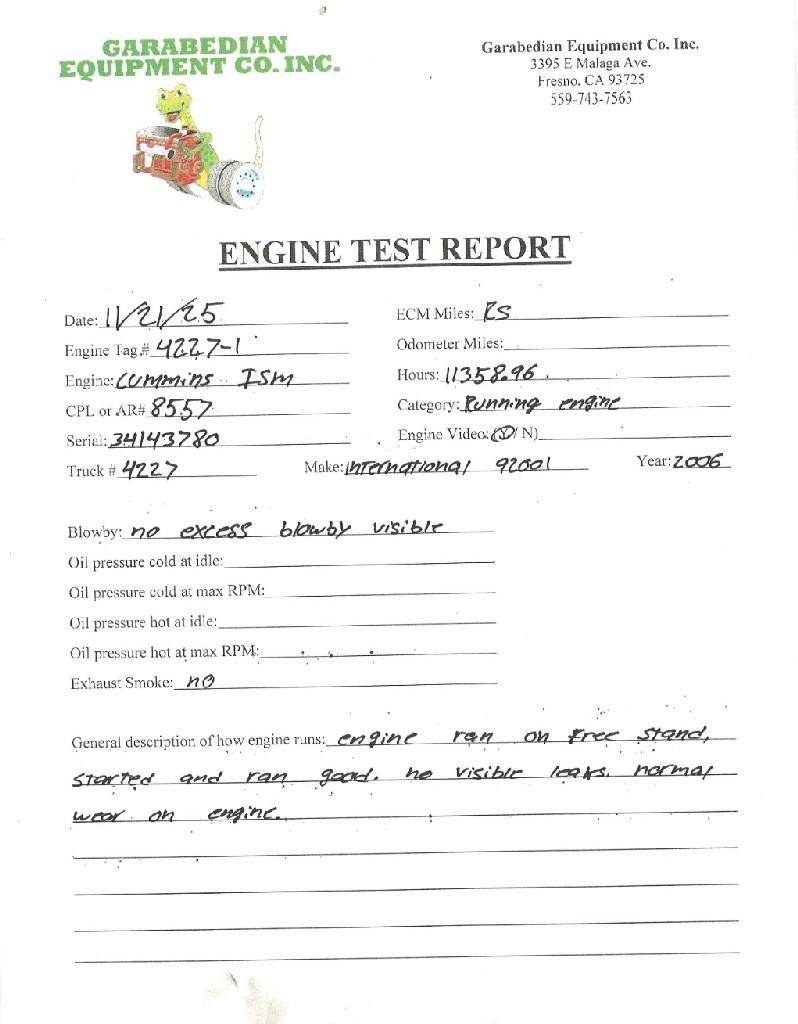 GARABEDIAN
EQUIPMENT CO. INC.
Garabedian Equipment Co. Inc.
3395 E Malaga Ave.
Fresno, CA 93725
559-743-7563
ENGINE TEST REPORT
Date: 11/21/25 ECM Miles: ES
Engine Tag# 4227-1 Odometer Miles:
Engine: Cummins ISM Hours: 11358.96
CPL or AR# 8557 Category: Running engine
Serial: 34143780 Engine Video: (Y/ N)
Truck # 4227 Make: International 9200i Year: 2006
Blowby: no excess blowby visible
Oil pressure cold at idle:
Oil pressure cold at max RPM:
Oil pressure hot at idle:
Oil pressure hot at max RPM:
Exhaust Smoke: no
General description of how engine runs: engine ran on free stand,
started and ran good. no visible leaks. normal
wear on engine.